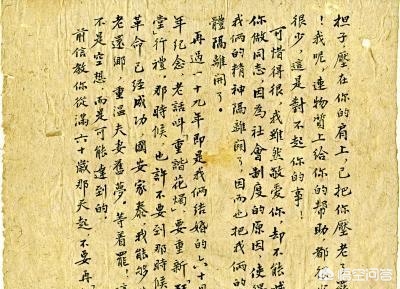 担子壓在你的肩上,已把你壓老羅
!我呢,連物質上給你的幫助,都
很少,這是對不起你的事!
可惜得很,我雖然敬愛你却不能
你做同志,因為社會制度的原因,使
我倆的精神隔離開了因而也把我倆的
體隔離開了。
再過一十九年即是我倆結婚的六十
年紀念,老話叫「重諧花燭」要重新
堂行禮」那時候也許不要到那時候
革命已經成功國安家泰我能夠
老還鄉,重溫夫妻舊夢。等着罷!這
不是空想,而是可能達到的。
前信教你從滿六十歲那天起,不要再
悟空问答